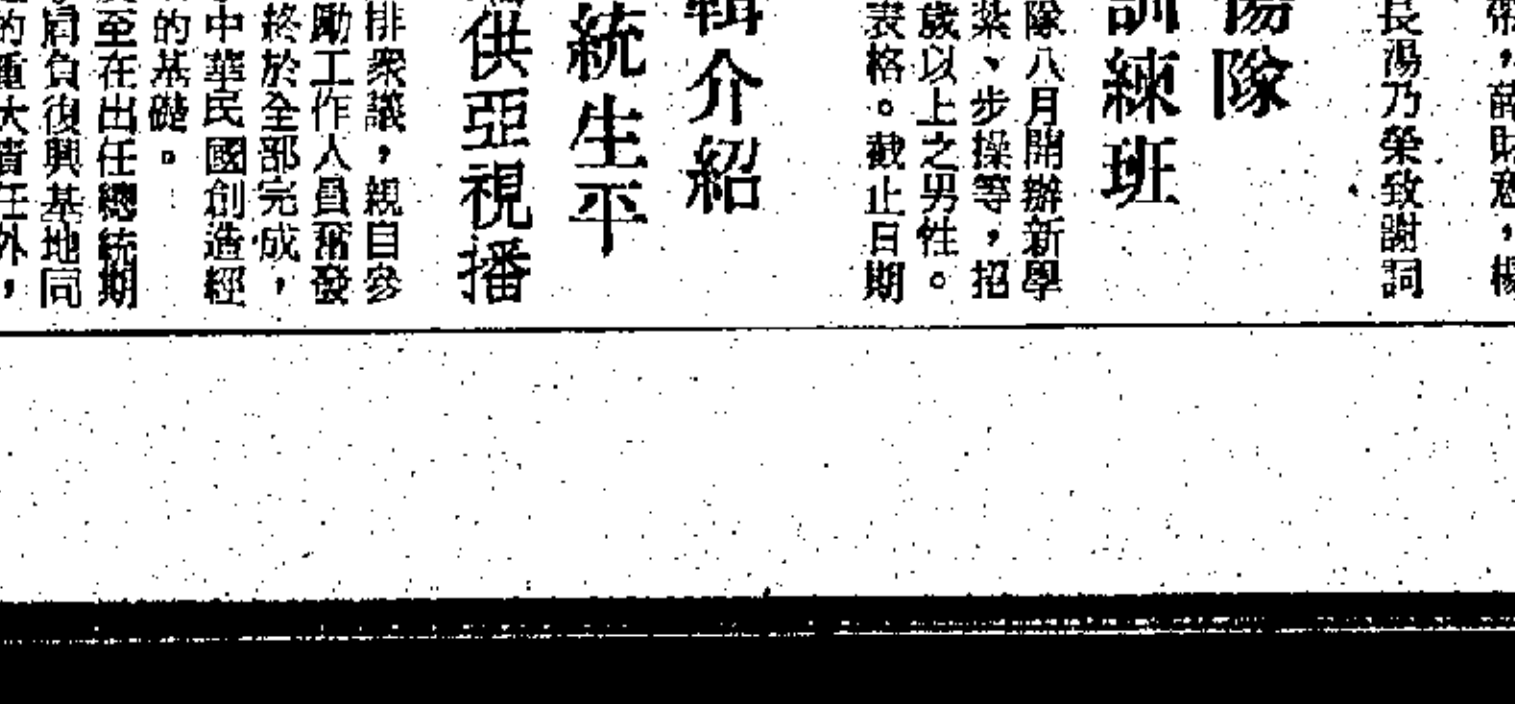 財意，楊
長湯乃榮致謝詞
隊
訓練班
隊八月開辦新學
紮、步操等，招
歲以上之男性。
表格。截止日期
輯介紹
統生平
供亞視播
排衆議，親自參
勵工作人員奮發
終於全部完成，
中華民國創造經
的基礎。
至在出任總統期
肩負復興基地同
的重大責任外，